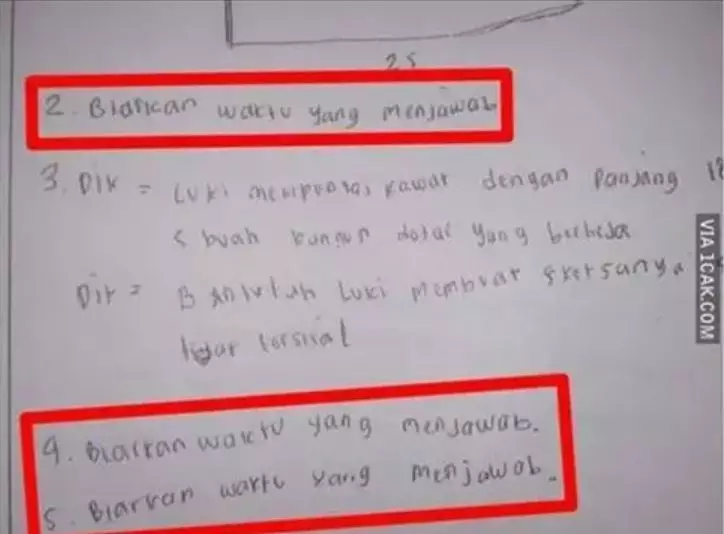 25
2. Biarkan waktu yang menjawab
3. Dik = Luki mempunyai kawat dengan Panjang 18
5 buah bangun datar yang berbeda
Dit = Bantulah Luki Membuat sketsanya
tersisa
4. Biarkan waktu yang menjawab.
5. Biarkan waktu yang menjawab.
VIA 1CAK.COM